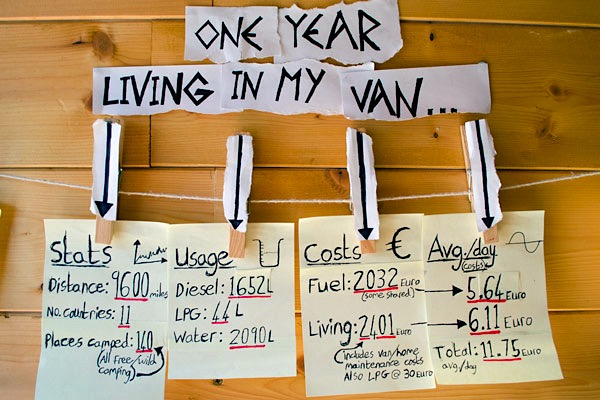 ONE YEAR
LIVING IN MY VAN...
Stats
Distance: 9600 miles
No. countries: 11
Places camped: 140
(All Free/wild
camping)
Usage
Diesel: 1652L
LPG: 44L
Water: 2090L
Costs €
Fuel: 2032 Euro
(some shared)
Living: 2401 Euro
(includes van/home
maintenance costs
Also LPG @ 30 Euro)
Avg./day
(costs)
5.64 Euro
6.11 Euro
Total: 11.75 Euro
avg./day